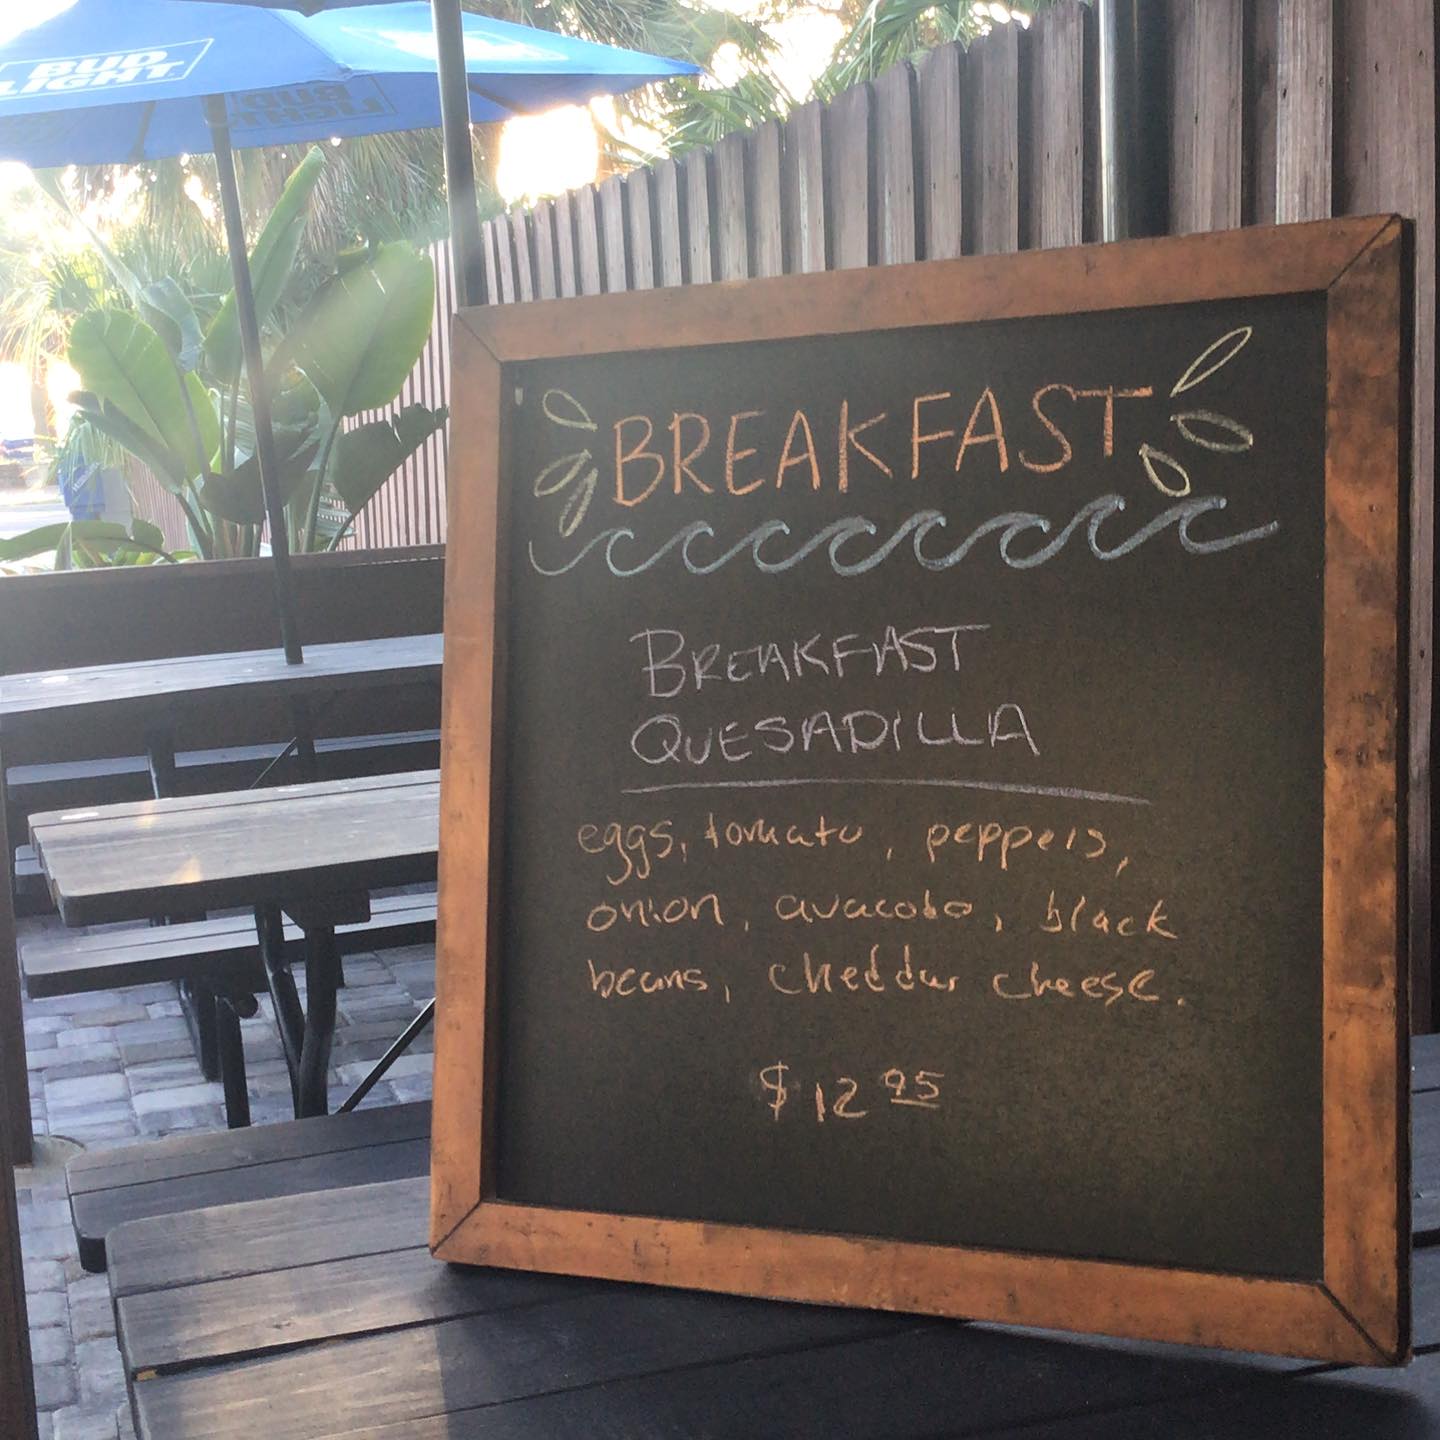 BUD
LIGHT
BUD
LIGHT
BREAKFAST
BREAKFAST
QUESADILLA
eggs, tomato, peppers,
onion, avacodo, black
beans, cheddar cheese.
$12 95